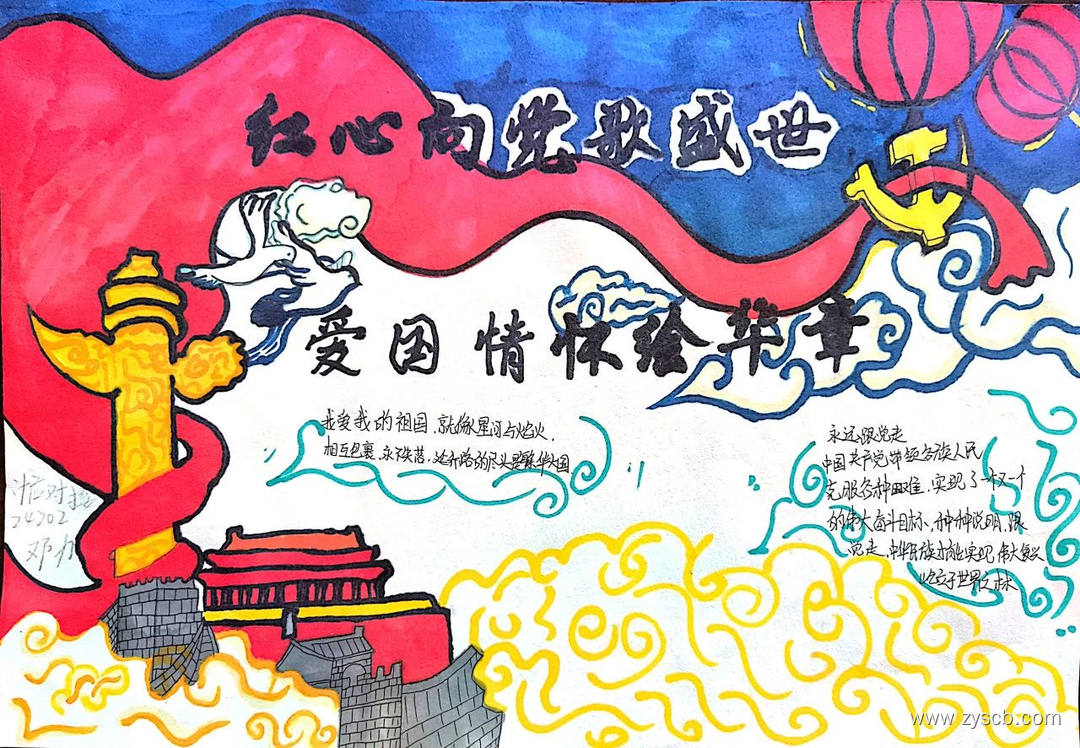 红心向党歌盛世
爱国情怀绘华章
我爱我的祖国,就像星河与焰火,
相互包裹,永不失落,
永远跟党走
中国共产党带领各族人民
克服各种困难,实现了一个又一个
的伟大奋斗目标,种种说明,跟
党走,中华民族才能实现伟大复兴
屹立于世界之林
24202
邓
www.zyscb.com